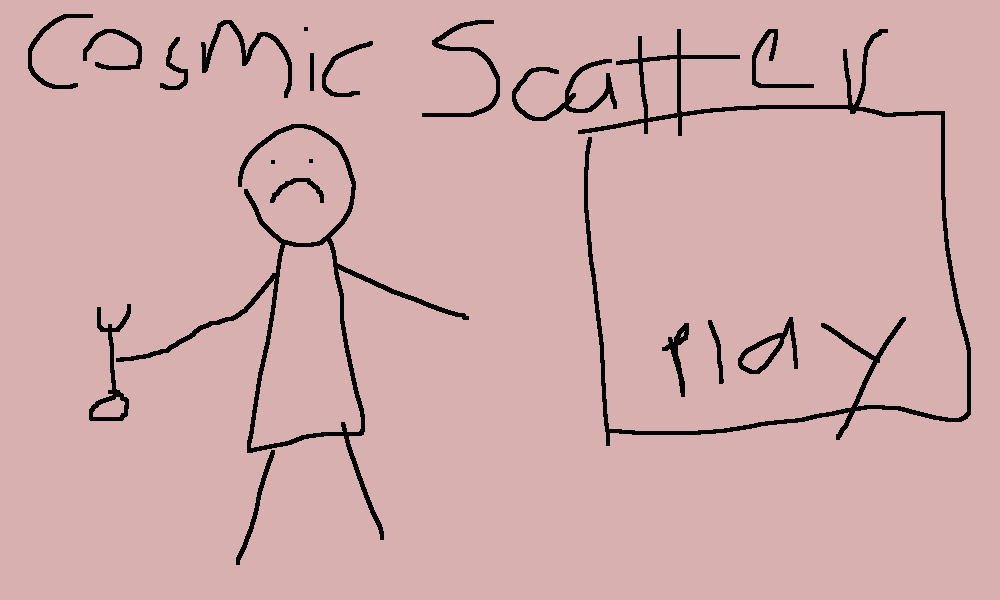 Cosmic Scatter
Play